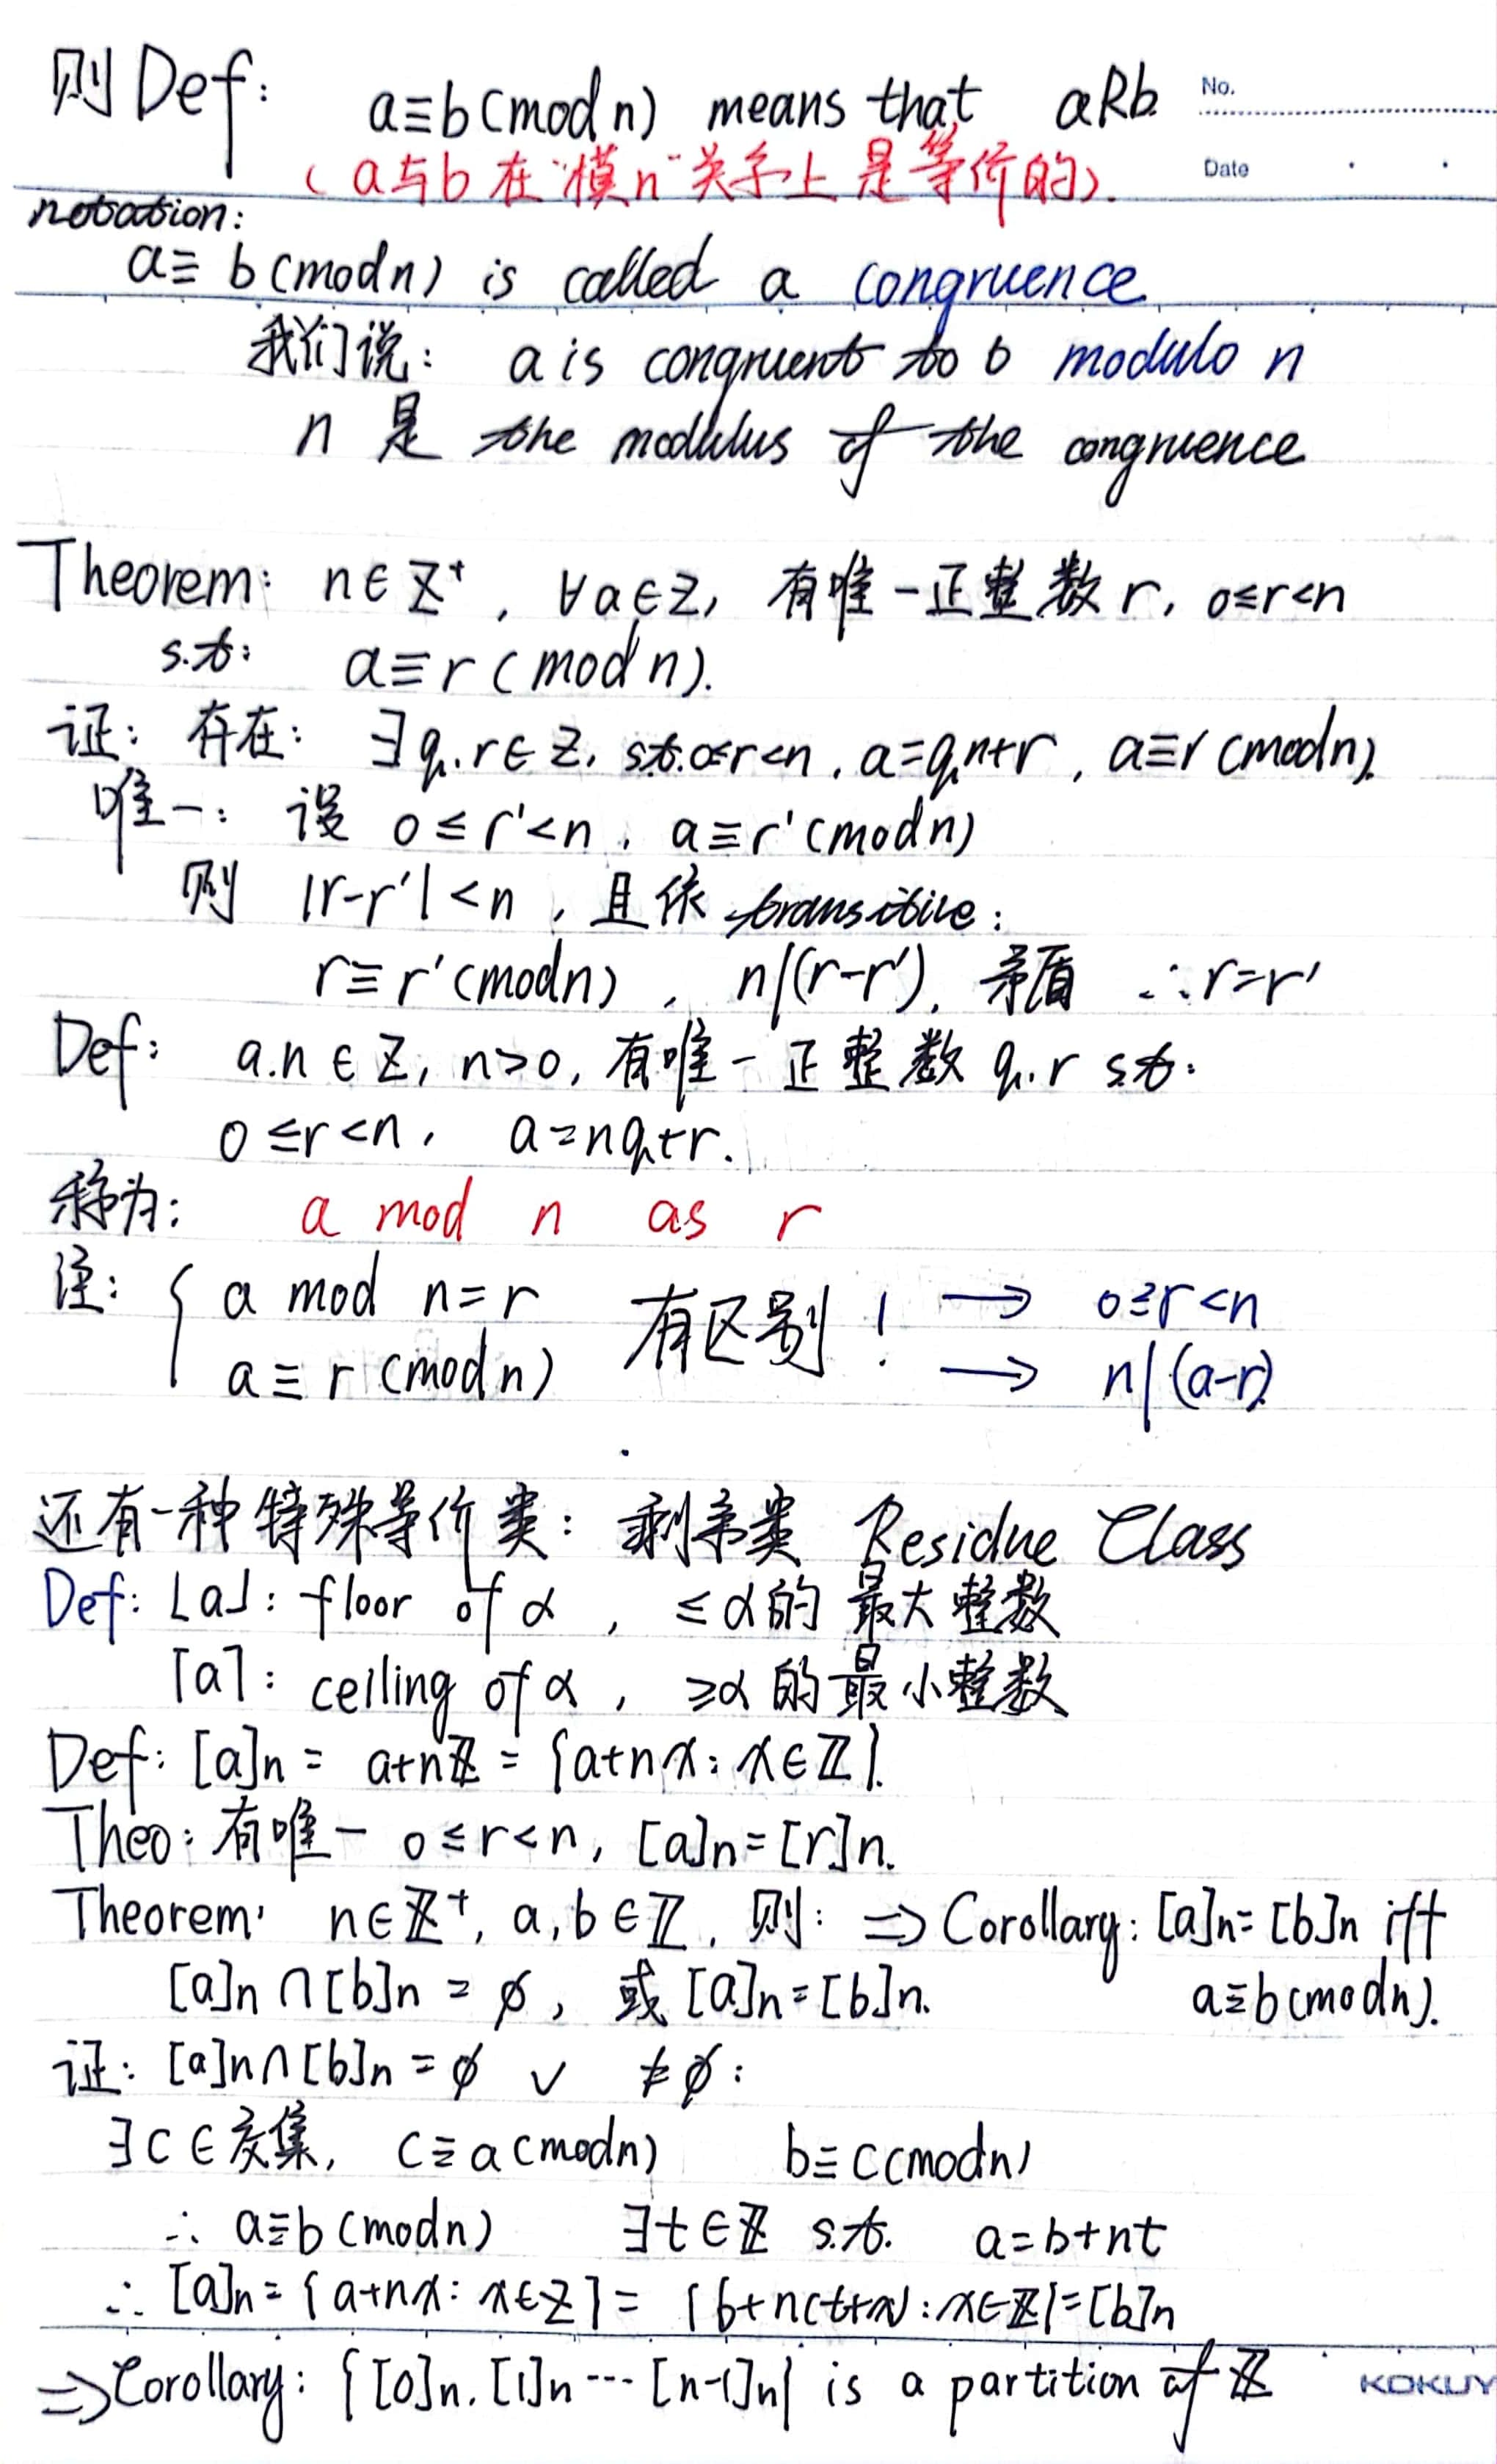 No.
则 Def: a≡b(mod n) means that aRb
Date
(a与b在"模n"关系上是等价的).
notation:
a≡b(mod n) is called a congruence
我们说: a is congruent to b modulo n
n 是 the modulus of the congruence
Theorem: n∈Z⁺, ∀a∈Z, 有唯一正整数r, 0≤r<n
s.t: a≡r(mod n).
证: 存在: ∃q,r∈Z, s.t.0≤r<n, a=qn+r, a≡r(mod n).
唯一: 设 0≤r'<n, a≡r'(mod n)
则 |r-r'|<n, 且依 transitive:
r≡r'(mod n), n|(r-r'), 矛盾 ∴r=r'
Def: a.n∈Z, n>0, 有唯一正整数 q,r s.t.
0≤r<n, a=nq+r.
称为: a mod n as r
注: { a mod n=r 有区别! → 0≤r<n
a≡r(mod n) → n|(a-r)
还有一种特殊等价类: 剩余类 Residue Class
Def: ⌊a⌋: floor of α, ≤α的最大整数
⌈a⌉: ceiling of α, ≥α的最小整数
Def: [a]n = a+nℤ = {a+nx: x∈ℤ}.
Theo: 有唯一 0≤r<n, [a]n=[r]n.
Theorem: n∈ℤ⁺, a,b∈ℤ, 则: ⇒ Corollary: [a]n=[b]n iff
[a]n∩[b]n=∅, 或 [a]n=[b]n. a≡b(mod n).
证: [a]n∩[b]n=∅ ✓ ≠∅:
∃c∈交集, c≡a(mod n) b≡c(mod n)
∴ a≡b(mod n) ∃t∈ℤ s.t. a=b+nt
∴ [a]n={a+nx: x∈Z}={b+n(t+x): x∈ℤ}=[b]n
⇒Corollary: {[0]n,[1]n…[n-1]n} is a partition of ℤ
KOKUY